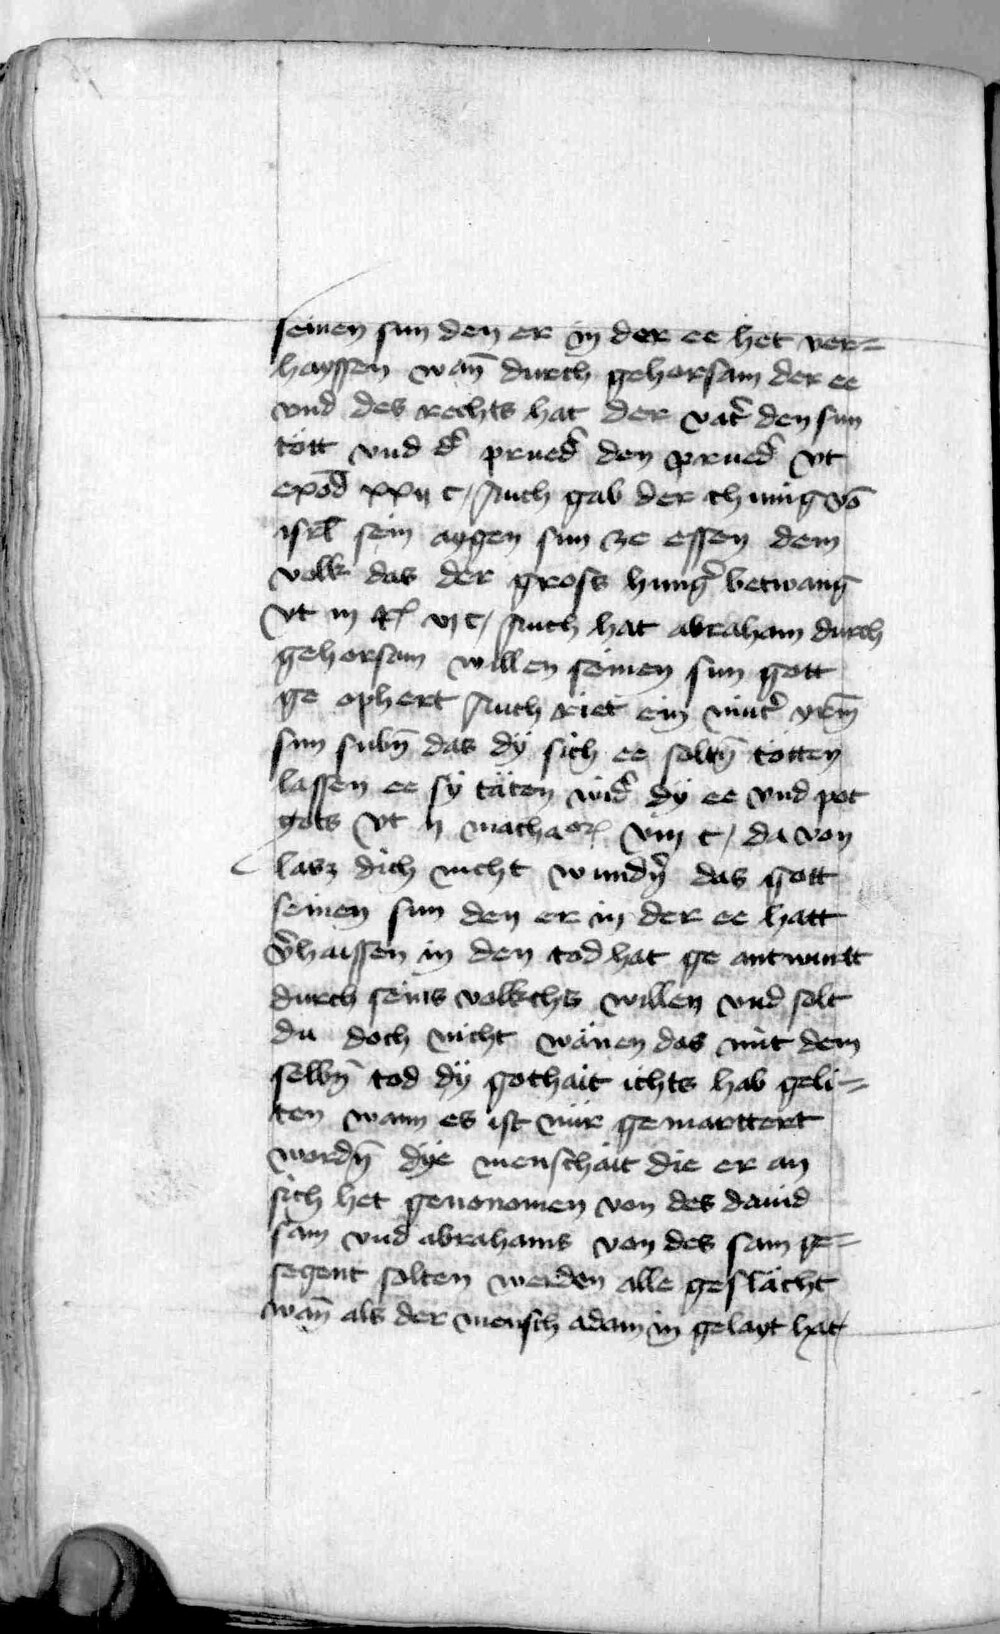 seinen sun den er in der ee het ver=
hayssen wan̄ durch gehorsam der ee
vnd des rechts hat der vat̉ den sun
tött vnd d̉ prued̉ den prued̉ vt
exod̄ xxij c / Auch gab der chunig vō
isrl̄ sein aygen sun ze essen dem
volk das der gross hung̉ betwang
vt iij R vj c / Auch hat abraham durch
gehorsam willen seinen sun gott
ge ophert Auch riet ein mut̉ yrm̄
sun subn̄ das dÿ sich ee soltn̄ tötten
lassen ee sÿ täten wid̉ dÿ ee vnd pot
gots vt ij machaor viij c / da von
lasz dich nicht wundn̉ das gott
seinen sun den er in der ee hatt
v̉haissen in den tod hat ge antwurtt
durch seins volkchs willen vnd solt
du doch nicht wänen das mit dem
selbn̄ tod dÿ gothait ichts hab geli=
ten wann es ist nür gemarttert
wordn̄ dÿe menschait die er an
sich het genonomen von des dauid
sam vnd abrahams von des sam ge=
segent solten werden alle geslächt
wan̄ als der mensch adam in gelayt hat